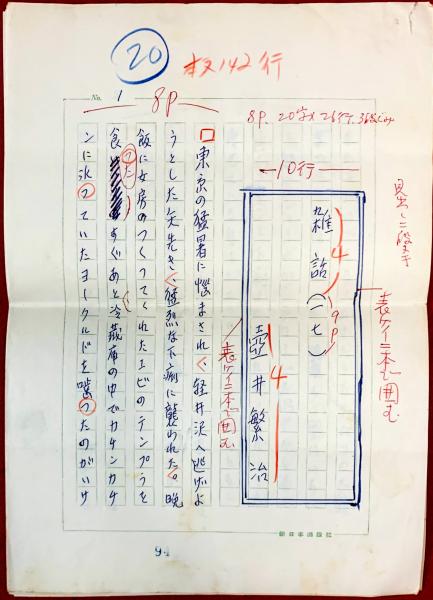 20
本文142行
No. 1
8P
8P. 20字×26行.
10行
見出し二段まで
雑詰(一七)
4
19P
壺井繁治
4
表ケイ二本で囲む
表ケイ二本で囲む
東京の猛暑に悩まされ、軽井沢へ逃げよ
うとした矢先き、猛烈な下痢に襲われた。晩
飯に女房のつくってくれたエビのテンプラを
食った すぐあと冷蔵庫の中でカチンカチ
ンに氷っていたヨークルトを嚙ったのがいけ
新日本出版社